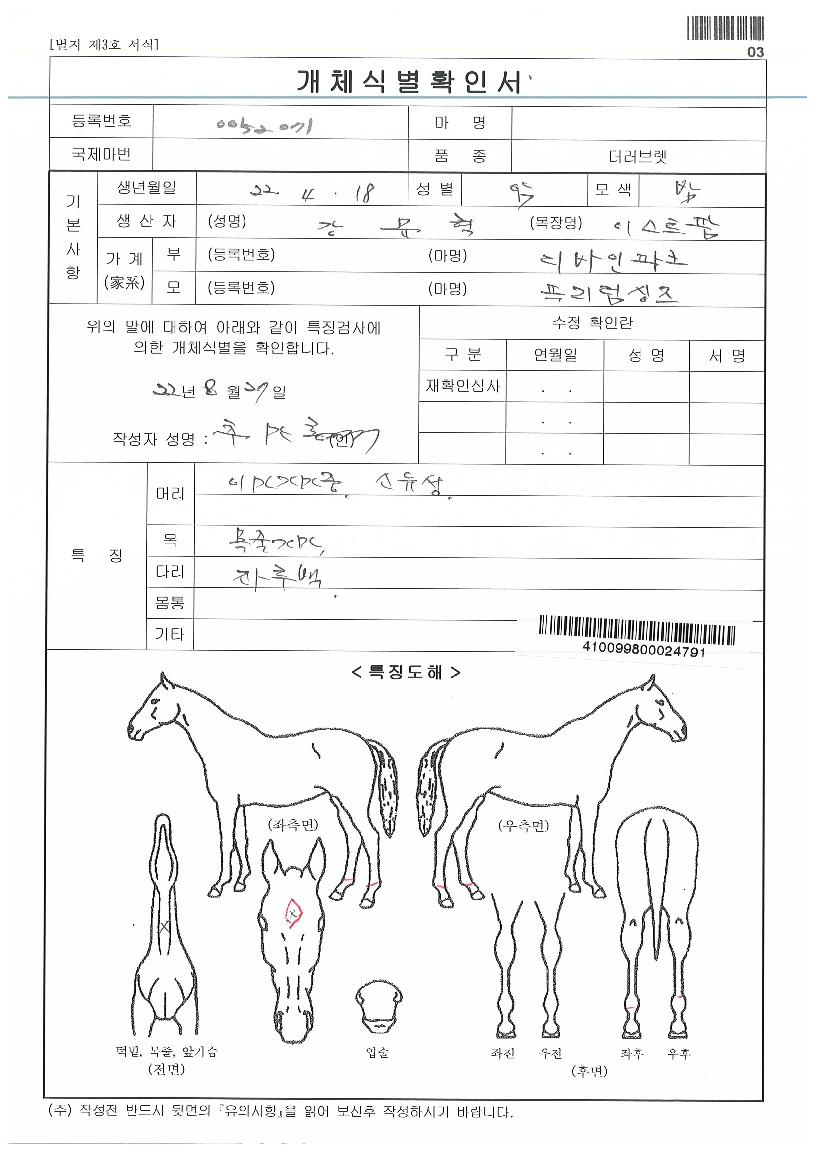 [별지 제3호 서식]
03
개체식별확인서
등록번호 0052071 마 명
국제마번 품 종 더러브렛
기본사항
생년월일 22. 4. 18 성별 모색 밤
생산자 (성명) 강 문 혁 (목장명) 이스트팜
가계(家系) 부 (등록번호) (마명) 디바인파크
모 (등록번호) (마명) 프리럼싱즈
위의 말에 대하여 아래와 같이 특징검사에
의한 개체식별을 확인합니다.
22년 8월 27일
작성자 성명 : (인)
수정 확인란
구분 연월일 성명 서명
재확인심사 . .
. .
. .
특 징
머리
목
다리
몸통
기타
410099800024791
<특징도해>
(좌측면) (우측면)
턱밑, 목줄, 앞가슴
(전면)
입술
좌전 우전 좌후 우후
(후면)
(주) 작성전 반드시 뒷면의 『유의사항』을 읽어 보신후 작성하시기 바랍니다.